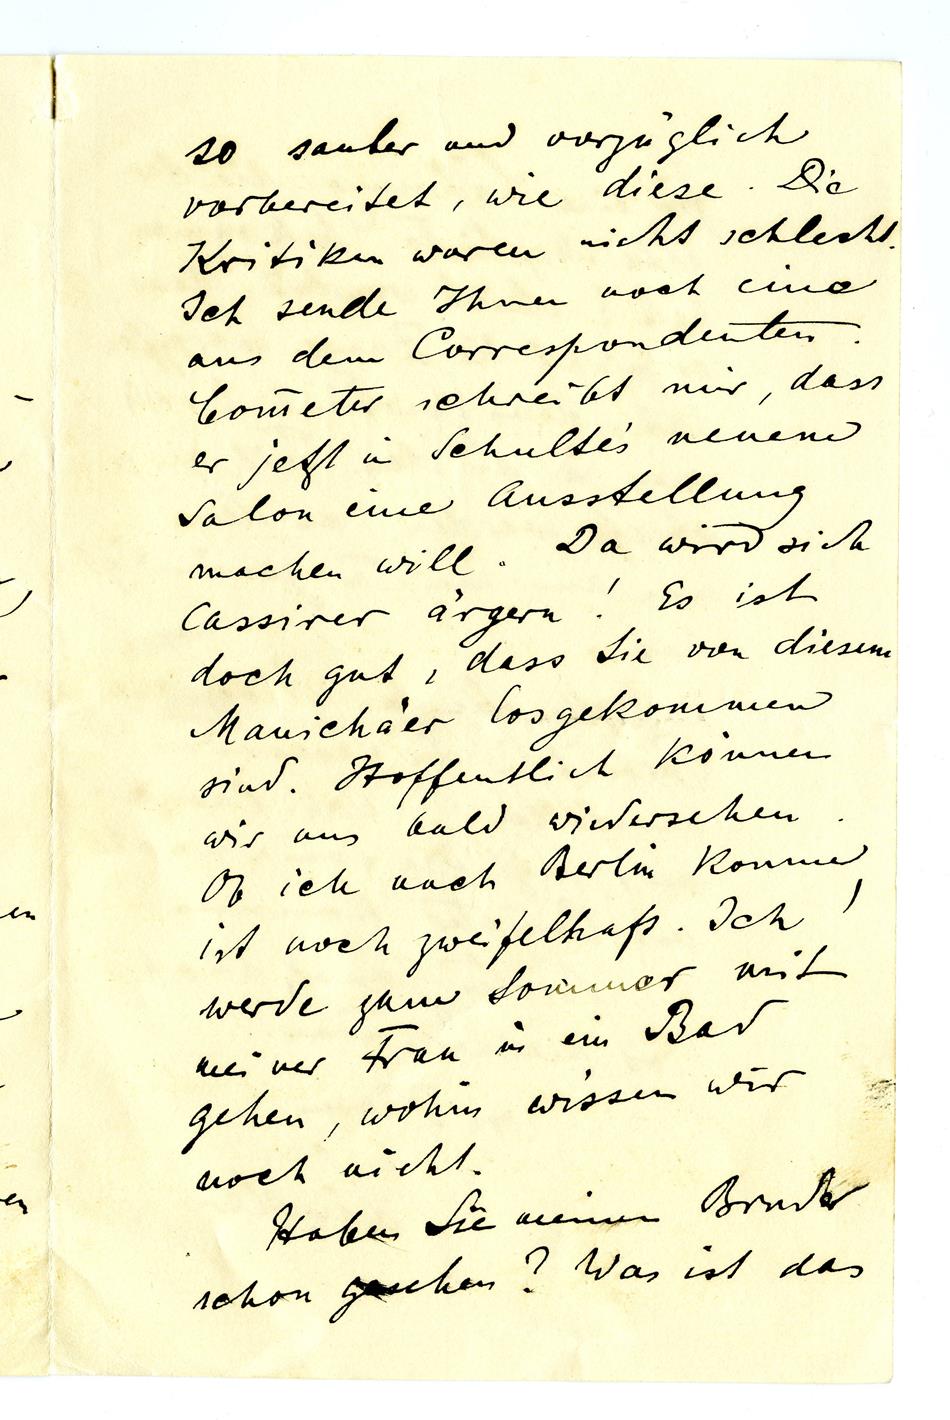 so sauber und vorzüglich
vorbereitet, wie diese. Die
Kritiken waren nicht schlecht.
Ich sende Ihnen noch eine
aus dem Correspondenten.
Com̄eter schreibt mir, dass
er jetzt in Schulte's neuem
Salon eine Ausstellung
machen will. Da wird sich
Cassirer ärgern! Es ist
doch gut, dass Sie von diesem
Manichäer losgekommen
sind. Hoffentlich können
wir uns bald wiedersehen.
Ob ich nach Berlin komme,
ist noch zweifelhaft. Ich
werde zum Sommer mit
meiner Frau in ein Bad
gehen, wohin wissen wir
noch nicht.
Haben Sie meinen Bruder
schon gesehen? Was ist das